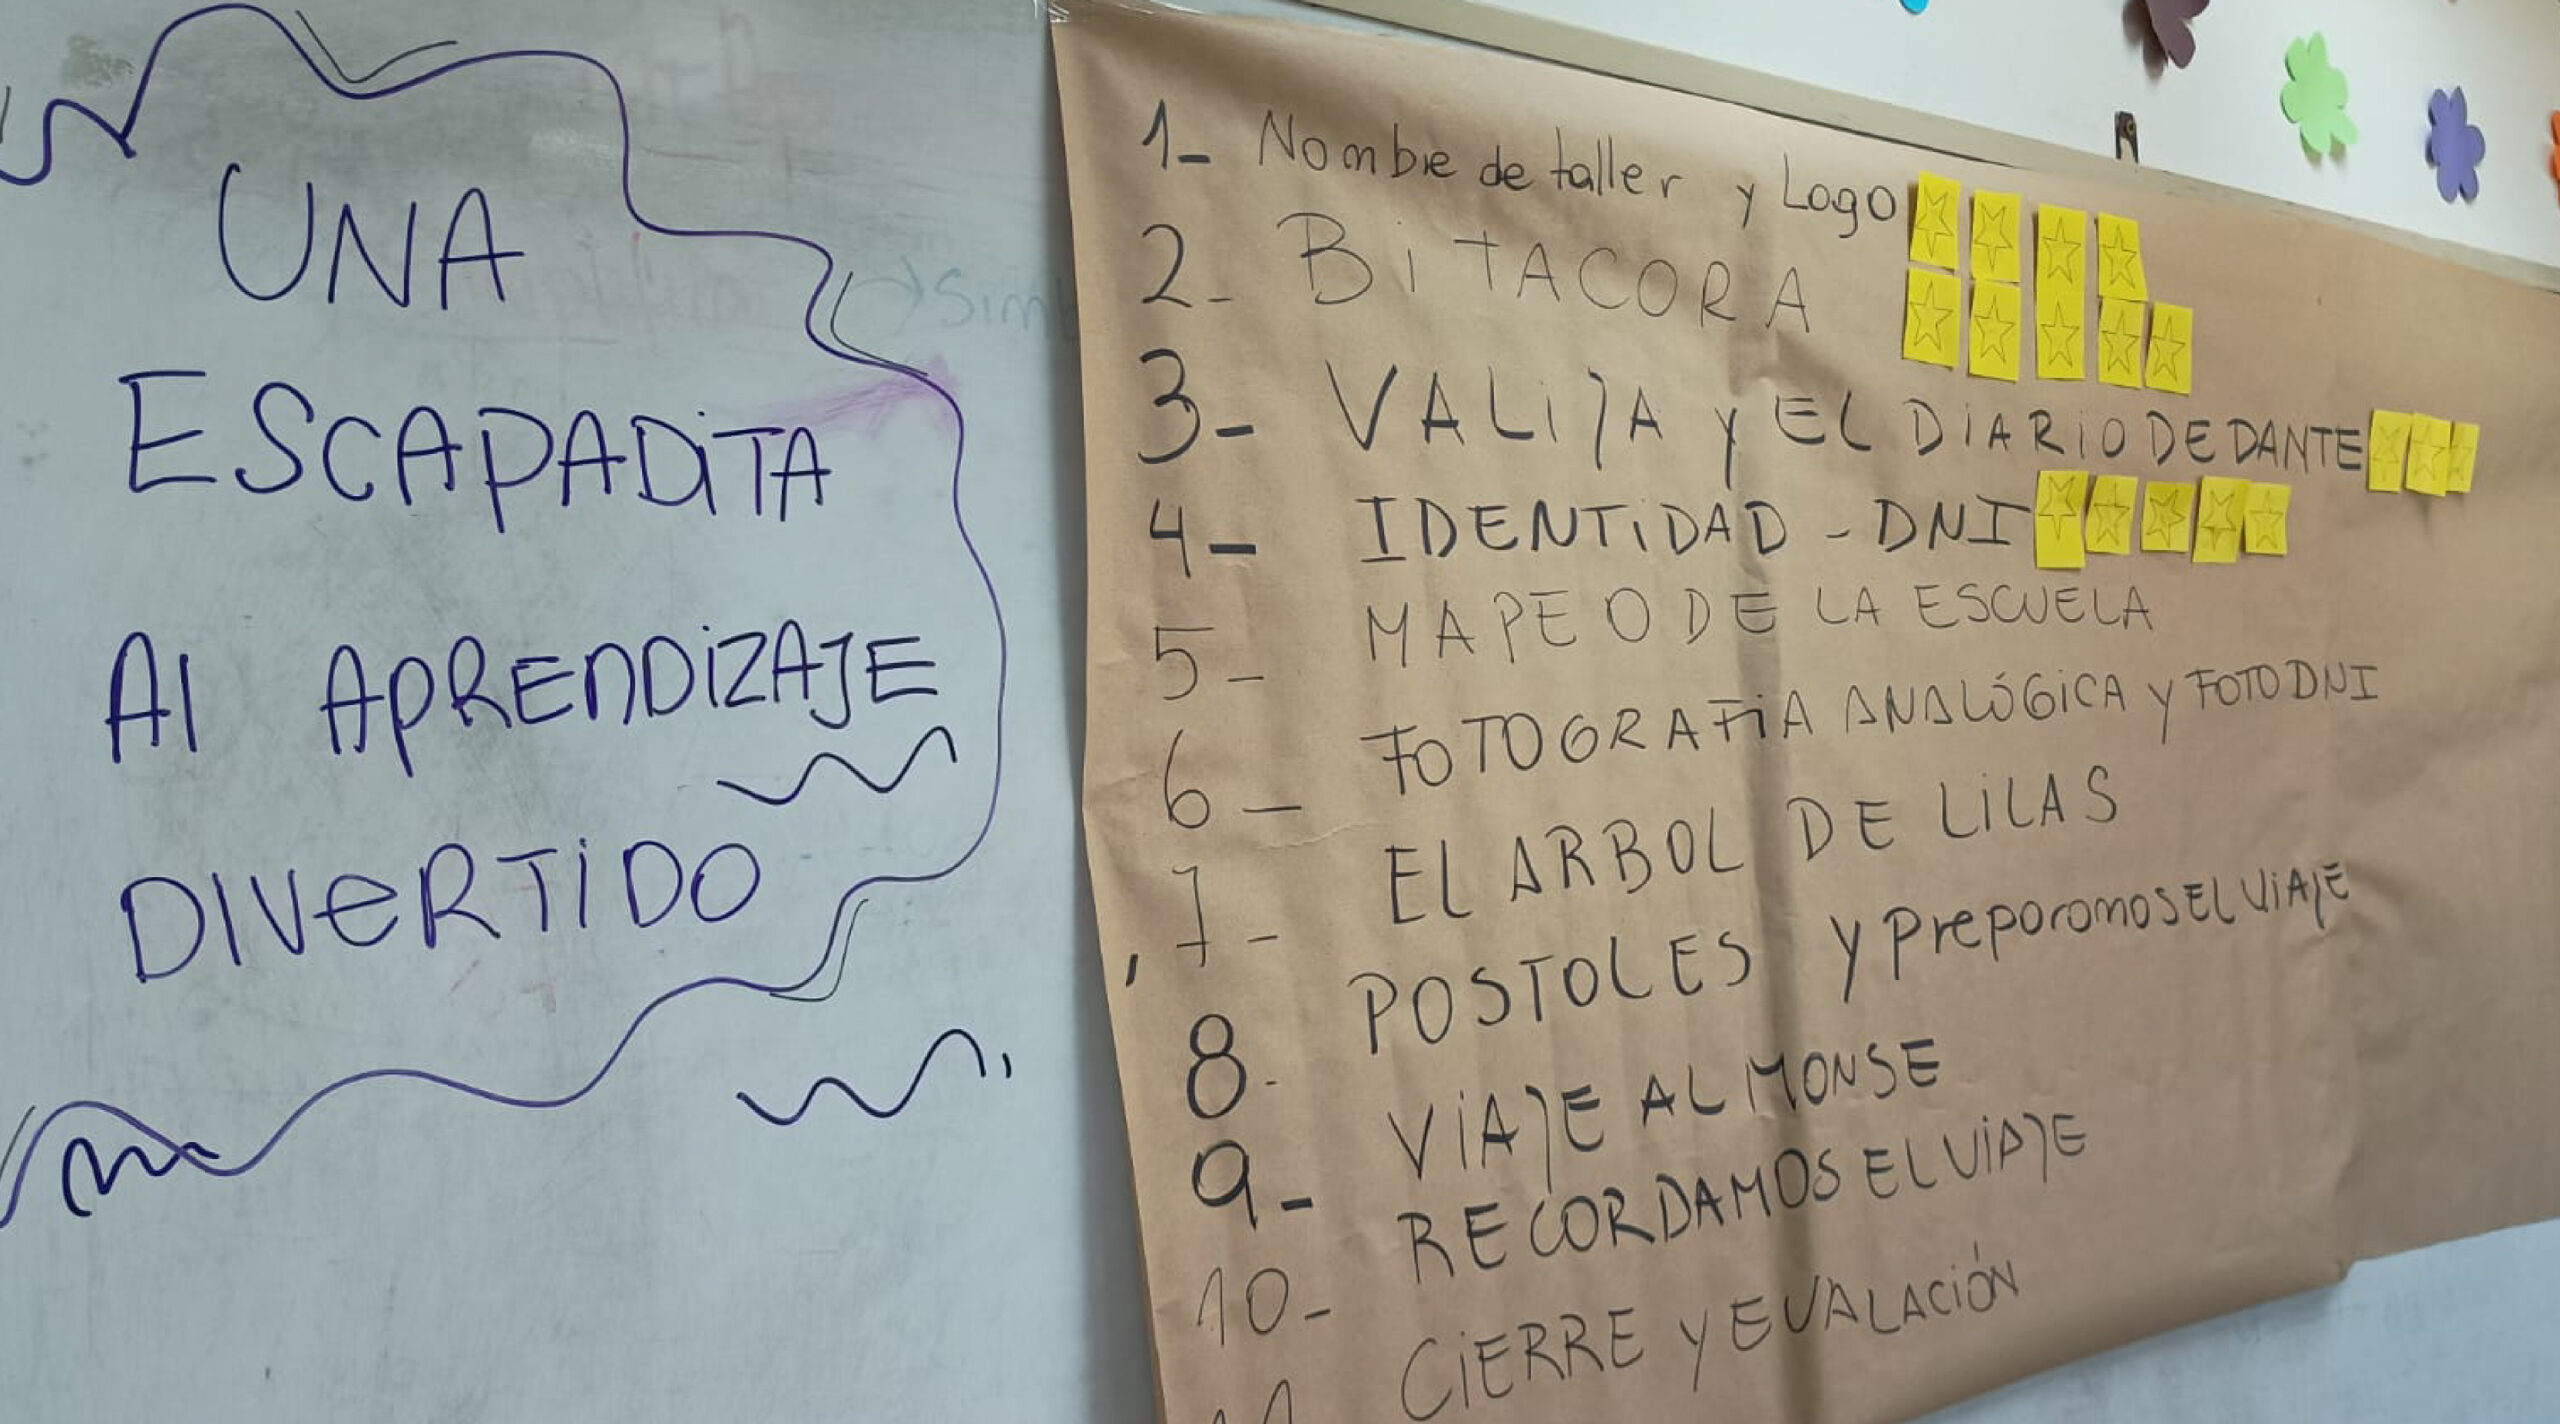 UNA
ESCAPADITA
Al APRENDIZAJE
DIVERTIDO
1- Nombre de taller y Logo
2- BITACORA
3- VALIJA Y EL DIARIO DE DANTE
4- IDENTIDAD - DNI
5- MAPEO DE LA ESCUELA
6- FOTOGRAFIA ANALÓGICA Y FOTO DNI
7- EL ARBOL DE LILAS
8- POSTALES Y Preparamos EL VIAJE
9- VIAJE AL MONSE
10- RECORDAMOS EL VIAJE
11 CIERRE Y EVALACIÓN